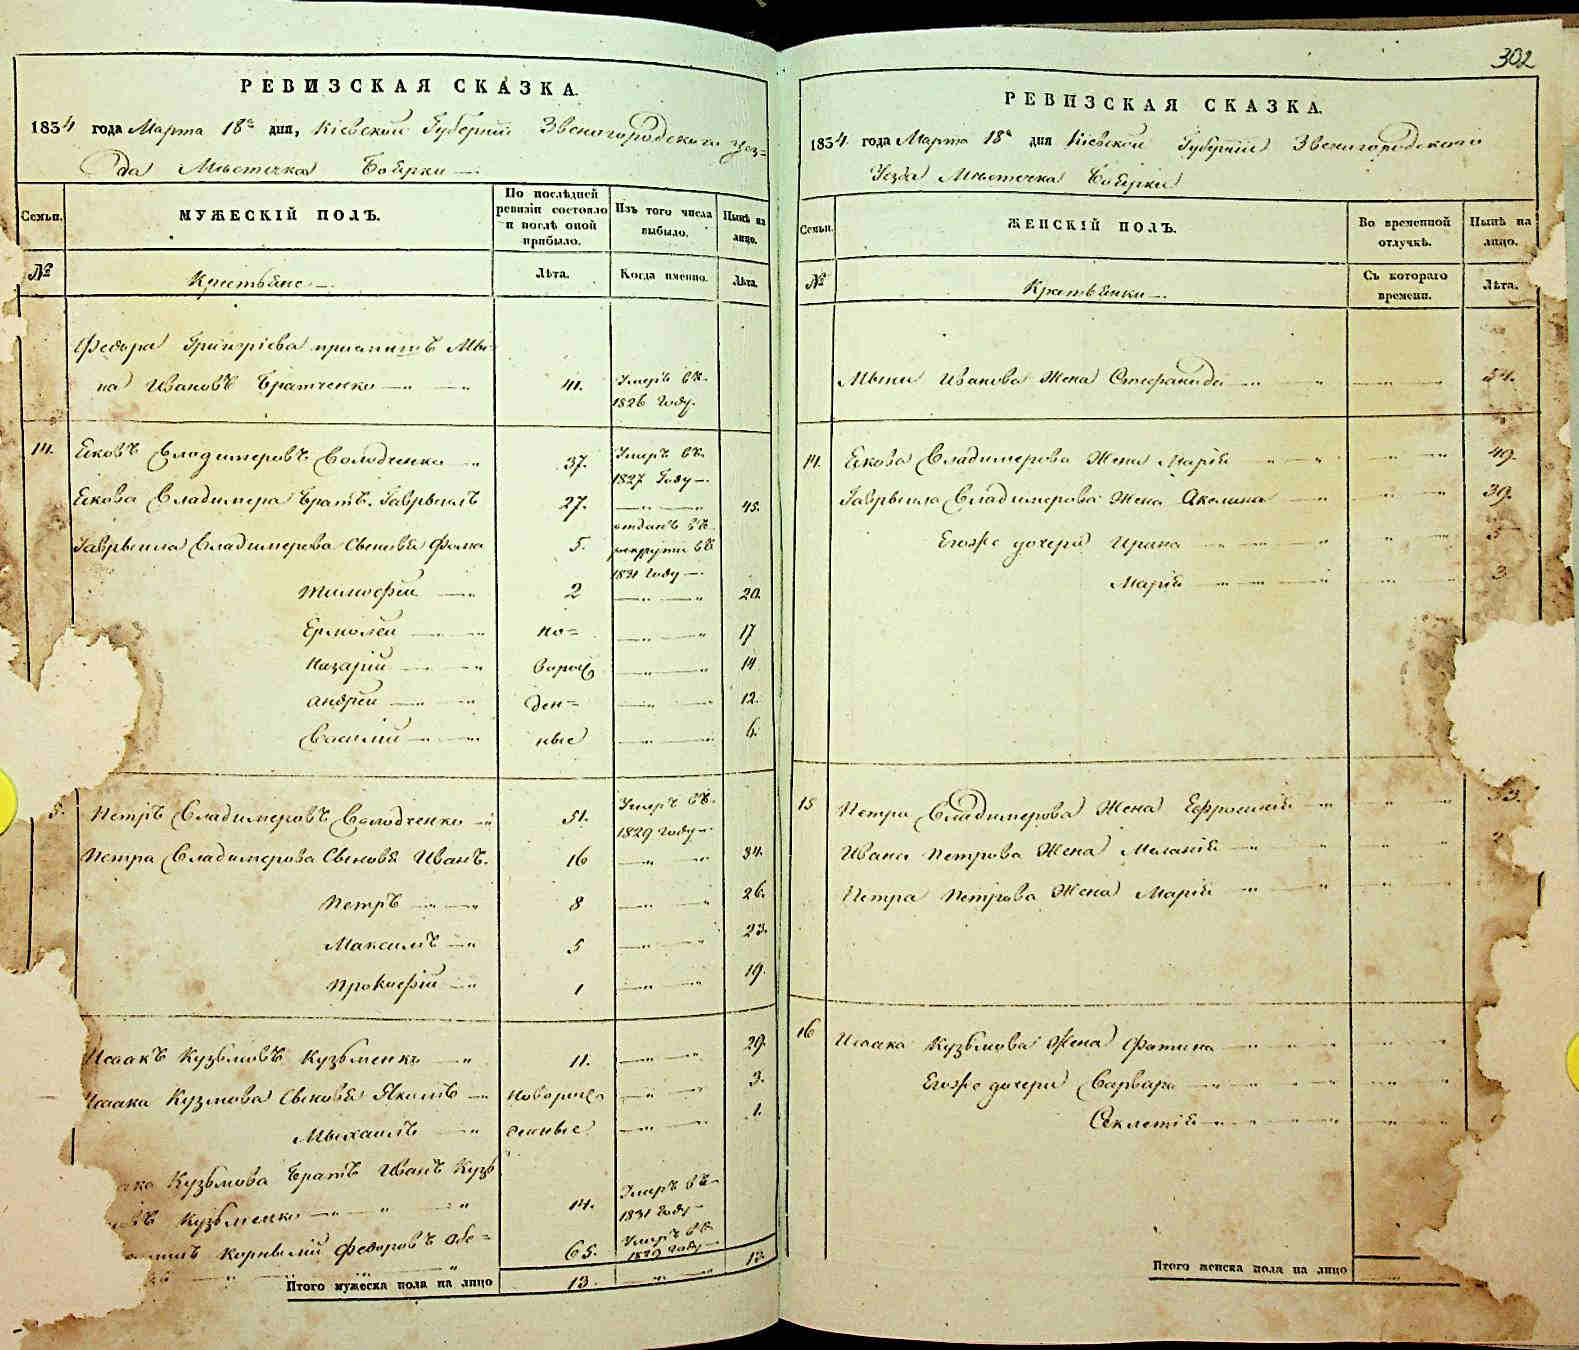 302
РЕВИЗСКАЯ СКАЗКА.
1834 года Марта 18го дня, Кіевской Губерніи Звенигородского Уез=
да Мѣстечка Боярки
Семьи. МУЖЕСКІЙ ПОЛЪ. По послѣдней ревизіи состояло и послѣ оной прибыло. Изъ того числа выбыло. Нынѣ на лицо.
№ Крестьяне Лѣта. Когда именно. Лѣта.
Федора Григоріева приемышъ Мы-
на Ивановъ Братченко 41. Умеръ въ 1826 Году.
14. Яковъ Владимеровъ Володченко 37. Умеръ въ 1827 Году
Якова Владимера Братъ Гаврыилъ 27. 45.
Гаврыила Владимерова Сыновья Фома 5. отданъ въ рекруты въ 1831 Году
Тимофей 2 20.
Ермолей но= 17
Назарій ворож 14
Андрей ден= 12.
Василий ные 6.
5. Петръ Владимеровъ Володченко 51. Умеръ въ 1829 Году
Петра Владимерова Сыновья Иванъ. 16 34.
Петръ 8 26.
Максимъ 5 23.
Прокофій 1 19.
Исаакъ Кузьмовъ Кузьменко 11. 29.
Исаака Кузмова Сыновья Якимъ Новорож 3.
Мыхаилъ денные 1.
ака Кузьмова Братъ Иванъ Кузь
въ Кузьменко 14. Умеръ въ 1831 Году
Корнылій Федоровъ 65. Умеръ въ 1829 Году
Итого мужеска пола на лицо 13. 13.
РЕВИЗСКАЯ СКАЗКА.
1834 года Марта 18го дня Кіевской Губерніи Звенигородского
Уезда Мѣстечка Боярки
Семьи. ЖЕНСКІЙ ПОЛЪ. Во временной отлучкѣ. Нынѣ на лицо.
№ Крестьянки Съ котораго времени. Лѣта.
Мыны Иванова Жена Стефанида 54.
14. Якова Владимерова Жена Марія 49.
Гаврыила Владимерова Жена Акелина 39.
Егоже дочери Ирина 5
Марія 3
15 Петра Владимерова Жена Ефросинія 53.
Ивана Петрова Жена Маланія
Петра Петрова Жена Марія
16 Исаака Кузьмова Жена Фотина
Егоже дочери Варвара
Феклетія
Итого женска пола на лицо